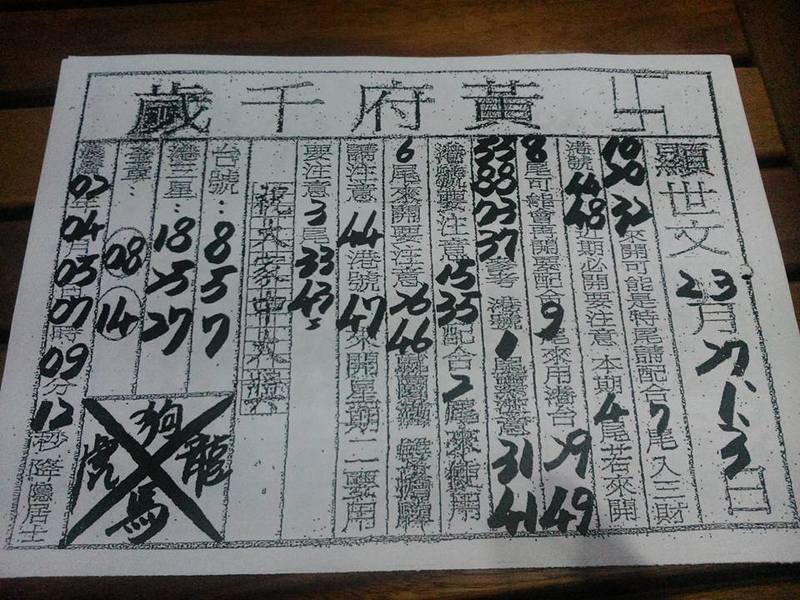 卐黃府千歲
顯世文 23 月 27 日
10 30 32 來開可能是特尾請配合 7 尾入三財
港號 44 48 期必開要注意 本期 4 尾若來開
8 尾可能會再開要配合 9 尾來用港台 29 49
33 03 37 參考 港號 1 尾 注意 31 41
港號要注意 15 35 配合 2 尾來使用
6 尾來開要注意 26 46
請注意 44 港號 47 來開星期二要用
要注意 3 尾 33 43
祝大家中大獎
台號：8 5 7
港三星：18 25 27
08 14
02 04 月 05 07 時 09 分 12 秒降隱居士
狗
虎 龍
馬